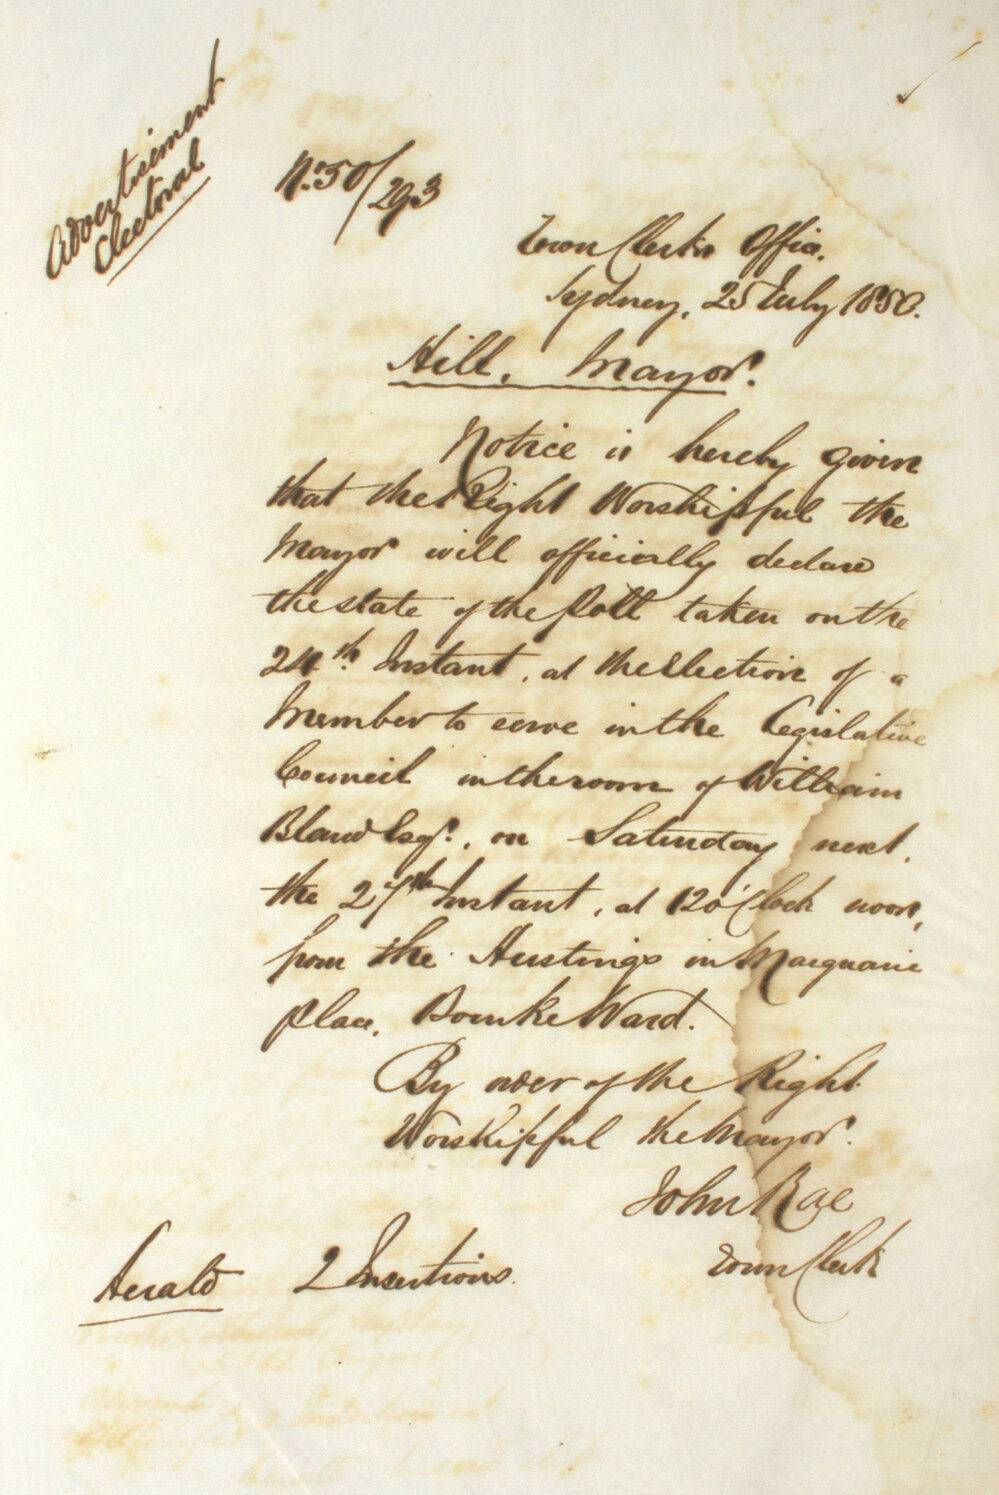 Advertisement
Electoral
No. 50/293
Town Clerk's Office,
Sydney, 25 July 1850.
Hill, Mayor.
Notice is hereby given
that the Right Worshipful the
Mayor will officially declare
the state of the Poll taken on the
24th Instant, at the Election of a
Member to serve in the Legislative
Council in the room of William
Bland Esqr., on Saturday next,
the 27th Instant, at 12 o'Clock noon,
from the Hustings in Macquarie
place, Bourke Ward.
By order of the Right
Worshipful the Mayor.
John Rae
Town Clerk
Herald 2 Insertions.